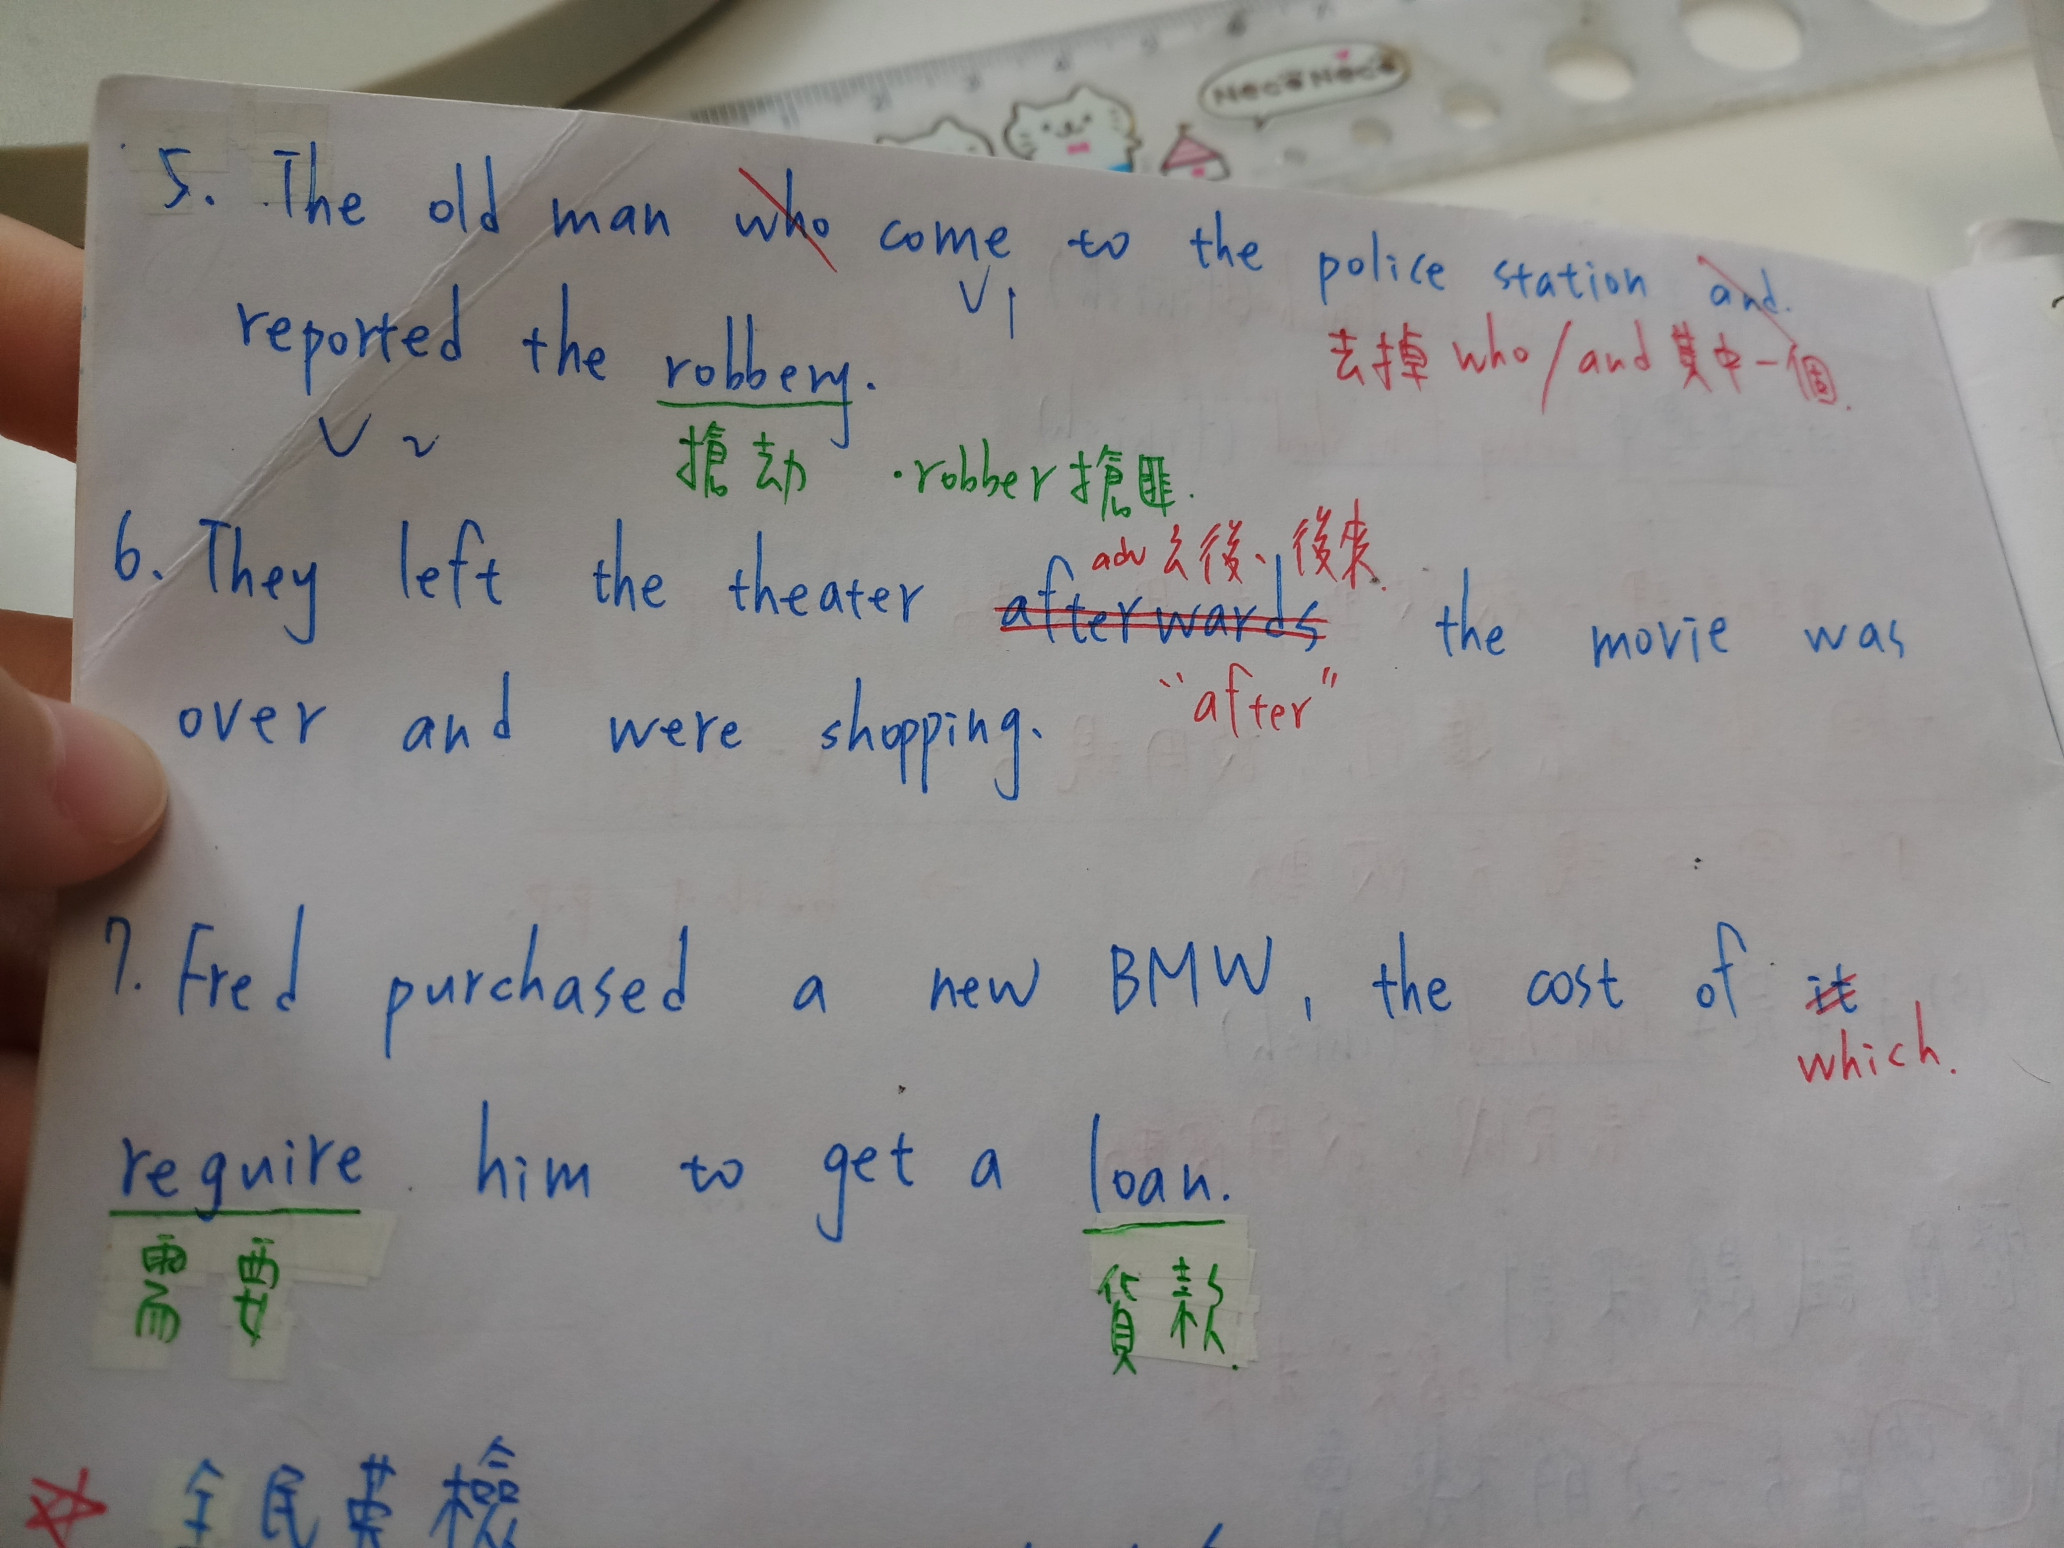 NecoNeco
5. The old man who come to the police station and.
V1
reported the robbery.
去掉 who/and 其中一個.
V2
搶劫 ·robber 搶匪.
adv 之後、後來.
6. They left the theater afterwards the movie was
"after"
over and were shopping.
7. Fred purchased a new BMW, the cost of it
which.
require him to get a loan.
需要 貸款.
全民英檢